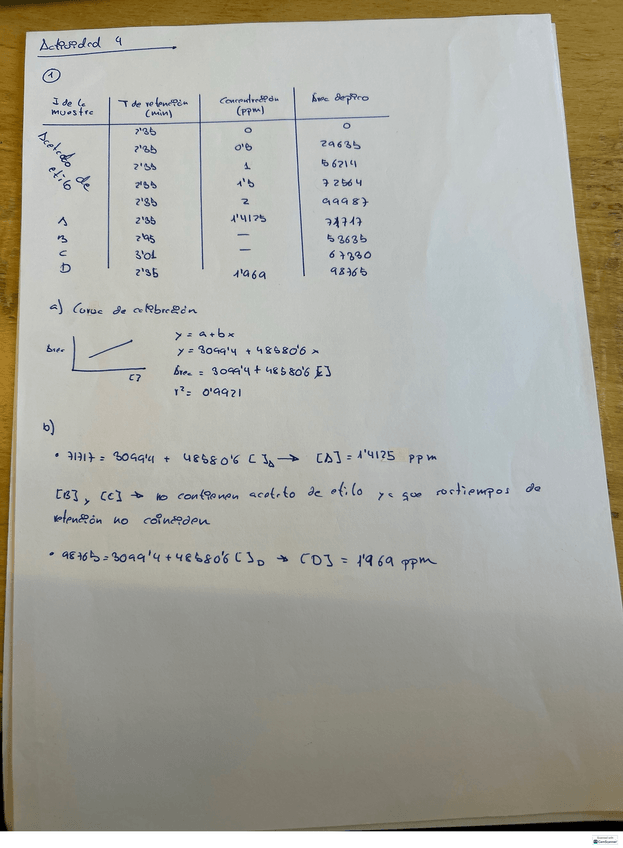 Actividad 4
1
I de la muestra | T de retención (min) | Concentración (ppm) | Área de pico
Acetato de etilo
2'35 | 0 | 0
2'35 | 0'5 | 29635
2'35 | 1 | 56214
2'35 | 1'5 | 72564
2'35 | 2 | 99987
A | 2'35 | 1'4125 | 71717
B | 2'95 | — | 53635
C | 3'01 | — | 67330
D | 2'35 | 1'969 | 98765
a) Curva de calibración
y = a + bx
Área
y = 3099'4 + 48580'6 x
Área = 3099'4 + 48580'6 [ ]
[ ]
r² = 0'9921
b)
• 71717 = 3099'4 + 48580'6 [ ]A → [A] = 1'4125 ppm
[B] y [C] → no contienen acetato de etilo ya que sus tiempos de
retención no coinciden
• 98765 = 3099'4 + 48580'6 [ ]D → [D] = 1'969 ppm
CamScanner